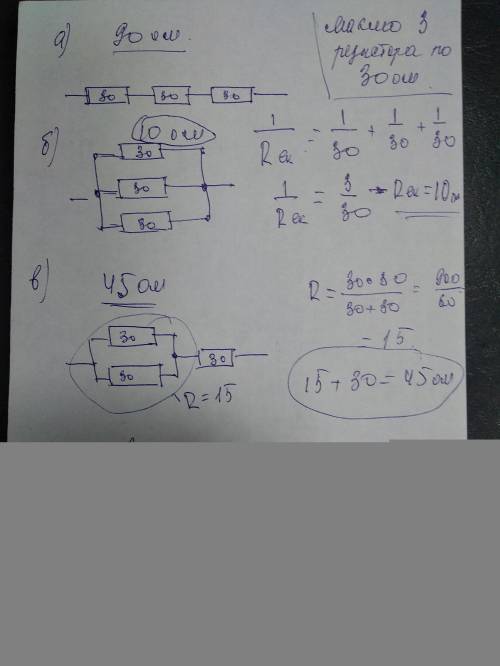 а) 90 ом.
маємо 3
резистора по
30 ом.
30 30 30
б) 10 ом
30
30
30
1/Rек = 1/30 + 1/30 + 1/30
1/Rек = 3/30 Rек = 10 ом
в) 45 ом
30
30
30
R = 15
R = 30·30/30+30 = 900/60
= 15
15 + 30 = 45 ом